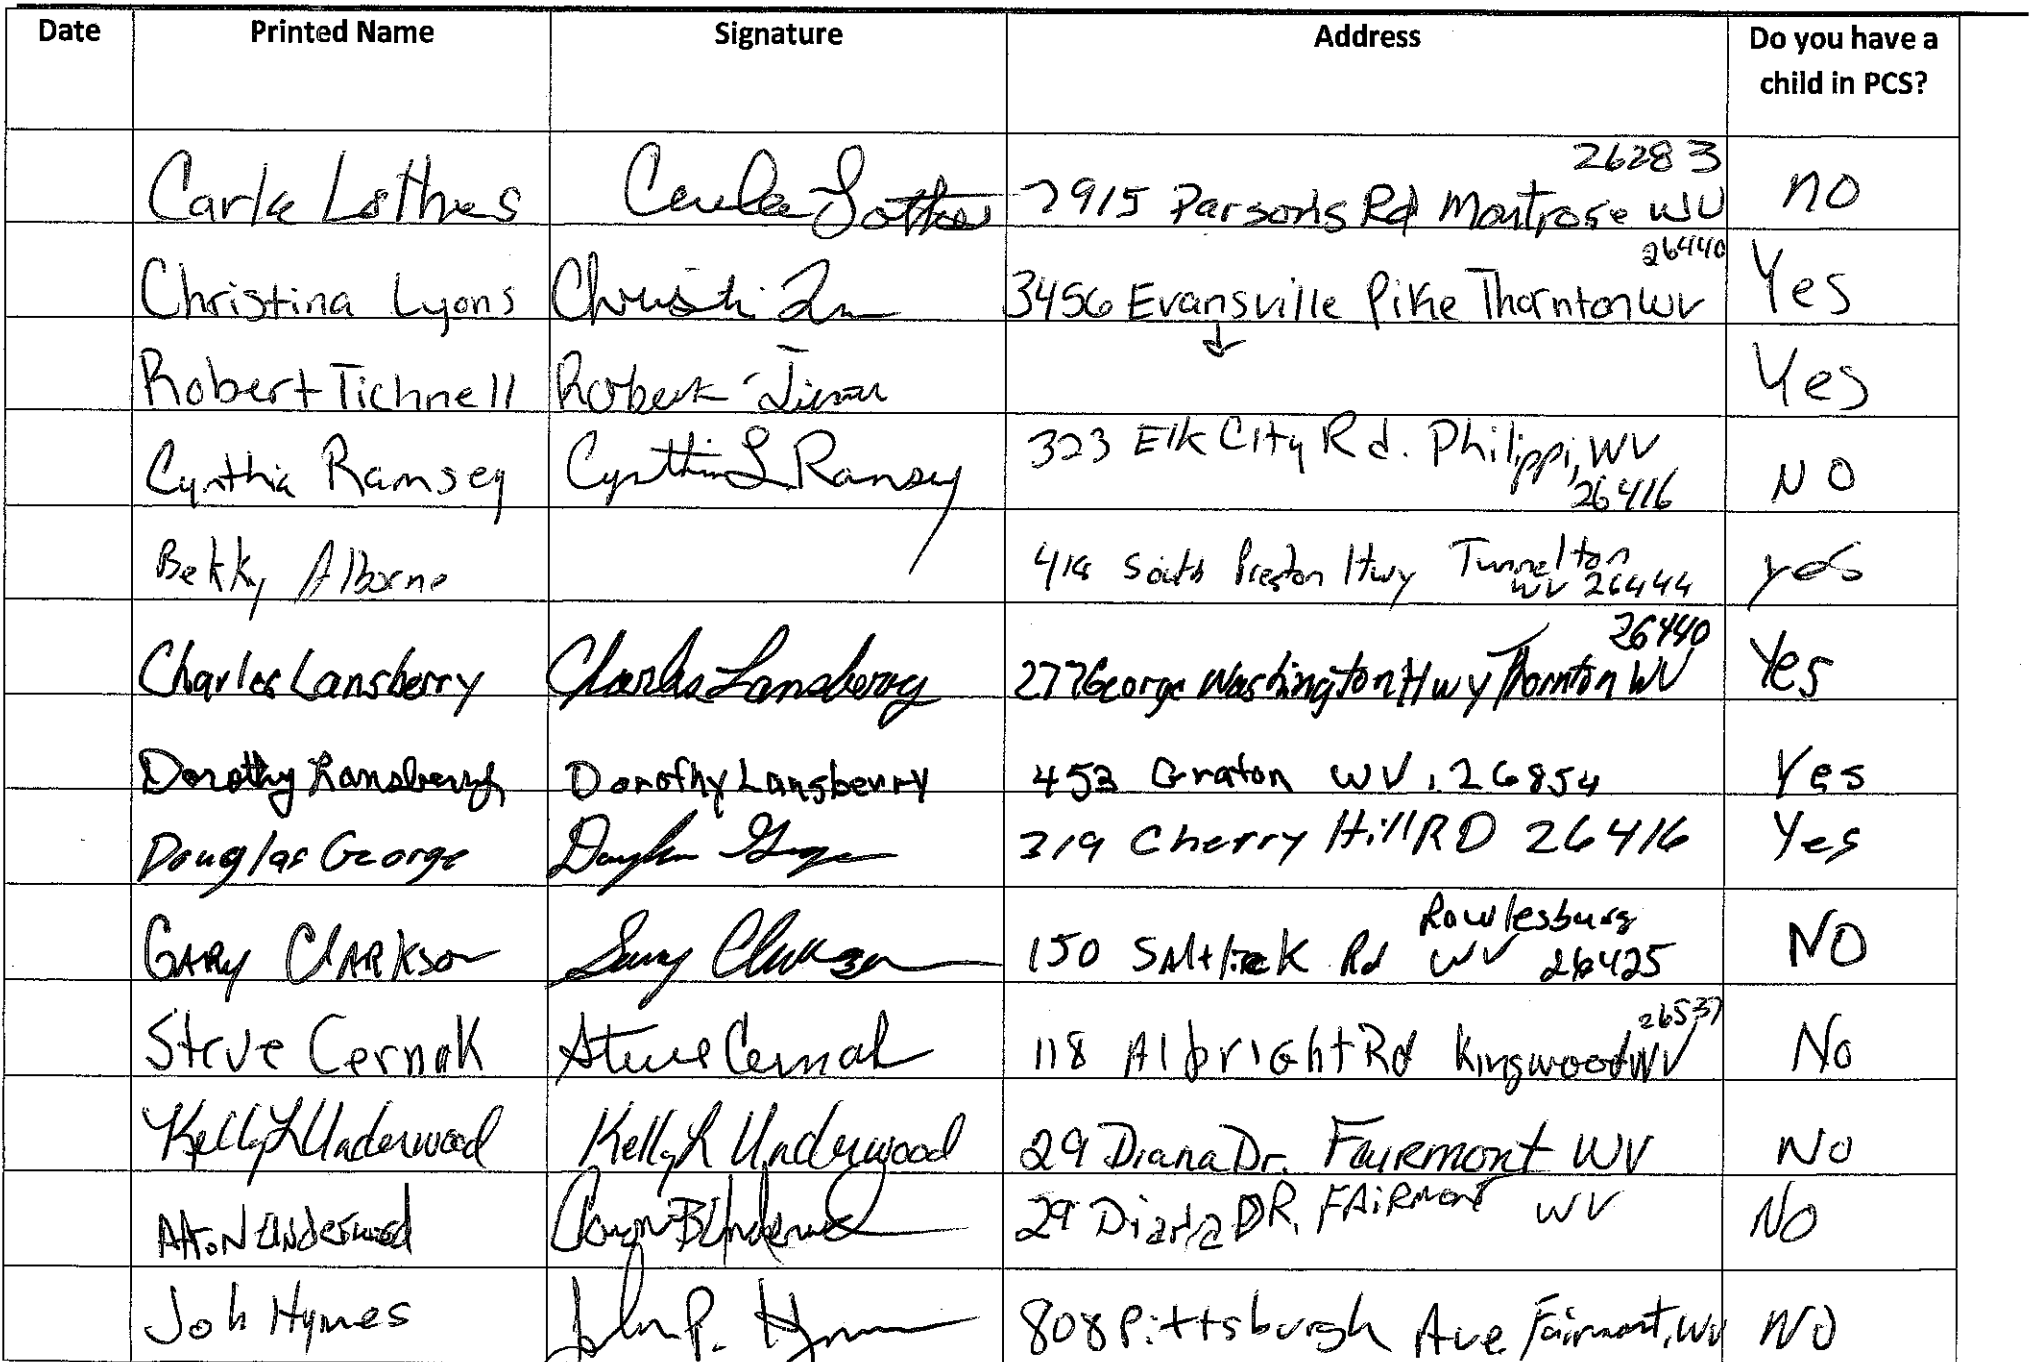 Date Printed Name Signature Address Do you have a
child in PCS?
26283
Carla Lothes Carla Lothes 7915 Parsons Rd Montrose WV no
26440
Christina Lyons 3456 Evansville Pike Thornton WV Yes
Robert Tichnell Robert ↓ Yes
Cynthia Ramsey Cynthia L Ramsey 323 Elk City Rd. Philippi, WV NO
26416
Bekky Alborne 418 South Preston Hwy Tunnelton yes
WV 26444
26440
Charles Lansberry Charles Lansberry 277 George Washington Hwy Thornton WV Yes
Dorothy Lansberry Dorothy Lansberry 453 Graton WV. 26854 Yes
Douglas George 319 Cherry Hill RD 26416 Yes
Rowlesburg
GARY CLARKSON Gary Clarkson 150 Saltlick Rd WV 26425 NO
26537
Steve Cernak Steve Cernak 118 Albright Rd Kingwood WV No
Kelly L Underwood Kelly L Underwood 29 Diana Dr. Fairmont WV No
Underwood 29 Diana DR, FAIRmont WV No
Joh Hymes John P. 808 Pittsburgh Ave Fairmont, WV NO